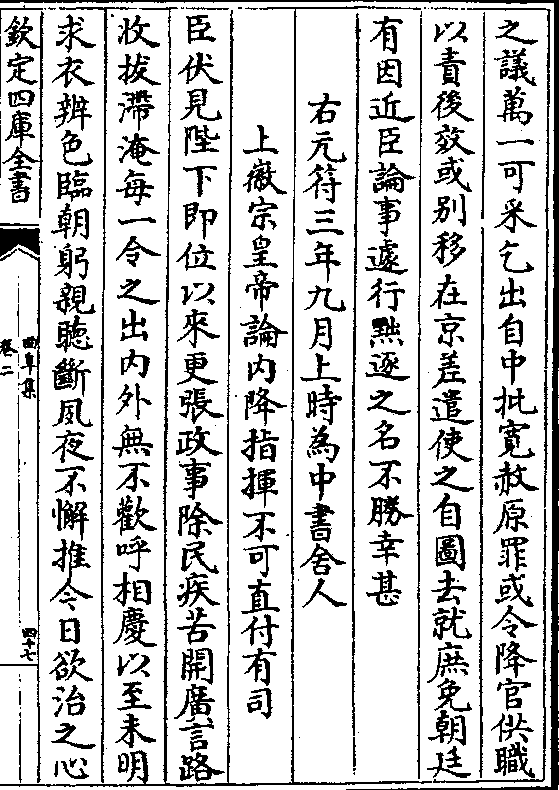 之議萬一可采乞出自中批寛赦原罪或令降官供職
以責後效或别移在京差遣使之自圖去就庶免朝廷
有因近臣論事遽行黜逐之名不勝幸甚
右元符三年九月上時為中書舍人
上徽宗皇帝論内降指揮不可直付有司
臣伏見陛下即位以來更張政事除民疾苦開廣言路
收拔滯淹每一令之出内外無不歡呼相慶以至未明
求衣辨色臨朝躬親聽斷夙夜不懈推今日欲治之心
欽定四庫全書
曲阜集
卷二
四十七